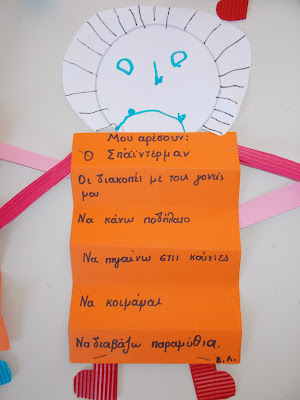 Μου αρέσουν:
Ο Σπάϊντερμαν
Οι διακοπές με τους γονείς
μου
Να κάνω ποδήλατο
Να πηγαίνω στις κούνιες
Να κοιμάμαι
Να διαβάζω παραμύθια.
Β.Λ.